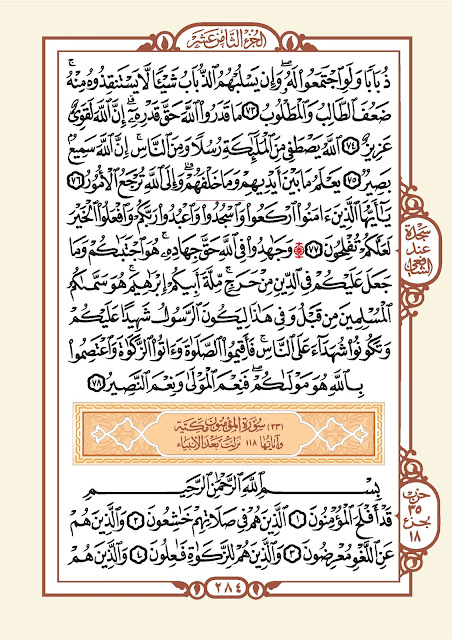 الجزء الثامن عشر
ذُبَابًا وَلَوِ ٱجْتَمَعُوا۟ لَهُۥ ۖ وَإِن يَسْلُبْهُمُ ٱلذُّبَابُ شَيْـًٔا لَّا يَسْتَنقِذُوهُ مِنْهُ ۚ
ضَعُفَ ٱلطَّالِبُ وَٱلْمَطْلُوبُ ﴿٧٣﴾ مَا قَدَرُوا۟ ٱللَّهَ حَقَّ قَدْرِهِۦٓ ۗ إِنَّ ٱللَّهَ لَقَوِىٌّ
عَزِيزٌ ﴿٧٤﴾ ٱللَّهُ يَصْطَفِى مِنَ ٱلْمَلَـٰٓئِكَةِ رُسُلًا وَمِنَ ٱلنَّاسِ ۚ إِنَّ ٱللَّهَ سَمِيعٌۢ
بَصِيرٌ ﴿٧٥﴾ يَعْلَمُ مَا بَيْنَ أَيْدِيهِمْ وَمَا خَلْفَهُمْ ۗ وَإِلَى ٱللَّهِ تُرْجَعُ ٱلْأُمُورُ ﴿٧٦﴾
يَـٰٓأَيُّهَا ٱلَّذِينَ ءَامَنُوا۟ ٱرْكَعُوا۟ وَٱسْجُدُوا۟ وَٱعْبُدُوا۟ رَبَّكُمْ وَٱفْعَلُوا۟ ٱلْخَيْرَ
لَعَلَّكُمْ تُفْلِحُونَ ۩ ﴿٧٧﴾ وَجَـٰهِدُوا۟ فِى ٱللَّهِ حَقَّ جِهَادِهِۦ ۚ هُوَ ٱجْتَبَىٰكُمْ وَمَا
جَعَلَ عَلَيْكُمْ فِى ٱلدِّينِ مِنْ حَرَجٍ ۚ مِّلَّةَ أَبِيكُمْ إِبْرَٰهِيمَ ۚ هُوَ سَمَّىٰكُمُ
ٱلْمُسْلِمِينَ مِن قَبْلُ وَفِى هَـٰذَا لِيَكُونَ ٱلرَّسُولُ شَهِيدًا عَلَيْكُمْ
وَتَكُونُوا۟ شُهَدَآءَ عَلَى ٱلنَّاسِ ۚ فَأَقِيمُوا۟ ٱلصَّلَوٰةَ وَءَاتُوا۟ ٱلزَّكَوٰةَ وَٱعْتَصِمُوا۟
بِٱللَّهِ هُوَ مَوْلَىٰكُمْ ۖ فَنِعْمَ ٱلْمَوْلَىٰ وَنِعْمَ ٱلنَّصِيرُ ﴿٧٨﴾
(٢٣) سورة المؤمنون مكية
وآياتها ١١٨ نزلت بعد الأنبياء
بِسْمِ ٱللَّهِ ٱلرَّحْمَـٰنِ ٱلرَّحِيمِ
قَدْ أَفْلَحَ ٱلْمُؤْمِنُونَ ﴿١﴾ ٱلَّذِينَ هُمْ فِى صَلَاتِهِمْ خَـٰشِعُونَ ﴿٢﴾ وَٱلَّذِينَ هُمْ
عَنِ ٱللَّغْوِ مُعْرِضُونَ ﴿٣﴾ وَٱلَّذِينَ هُمْ لِلزَّكَوٰةِ فَـٰعِلُونَ ﴿٤﴾ وَٱلَّذِينَ هُمْ
سجدة
عند
الشافعي
حزب
٣٥
بجزء
١٨
٢٨٤